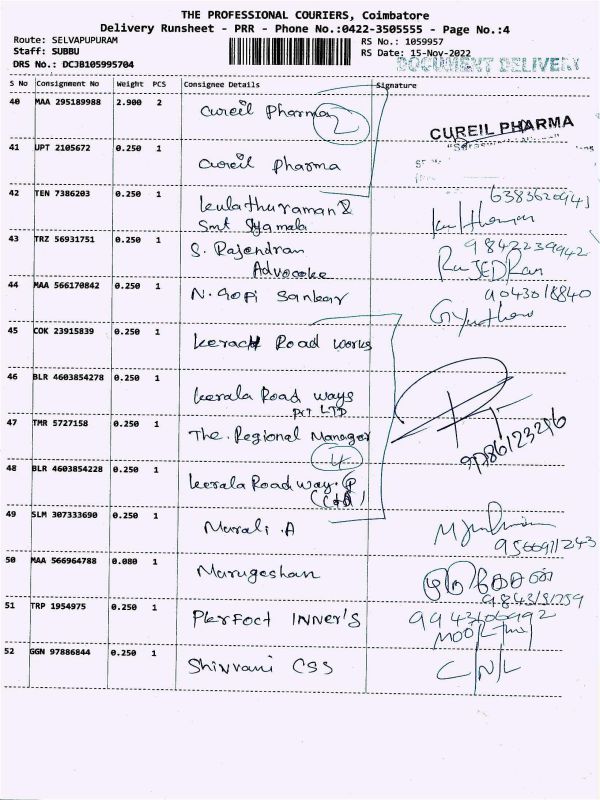 THE PROFESSIONAL COURIERS, Coimbatore
Delivery Runsheet - PRR - Phone No.:0422-3505555 - Page No.:4
Route: SELVAPUPURAM
Staff: SUBBU
DRS No.: DCJB105995704
RS No.: 1059957
RS Date: 15-Nov-2022
DOCUMENT DELIVERY
S No Consignment No Weight PCS Consignee Details Signature
40 MAA 295189988 2.900 2 Cureil Pharma 2
CUREIL PHARMA
41 UPT 2105672 0.250 1 Cureil Pharma
42 TEN 7386203 0.250 1 Kulathuraman &
Smt Syamala
6383620941
43 TRZ 56931751 0.250 1 S. Rajendran
Advocate
9842239942
RaJEDRan
44 MAA 566170842 0.250 1 N. Gopi Sankar
9043018840
45 COK 23915839 0.250 1 Road Works
46 BLR 4603854278 0.250 1 Kerala Road ways
PVT LTD
47 TMR 5727158 0.250 1 The. Regional Manager
4
48 BLR 4603854228 0.250 1 Kerala Road way.
49 SLM 307333690 0.250 1 Murali .A
9566911243
50 MAA 566964788 0.080 1 Murugeshan
51 TRP 1954975 0.250 1 Perfoct INNER'S
9943106992
52 GGN 97886844 0.250 1 Shivrani CSS
C/N/L